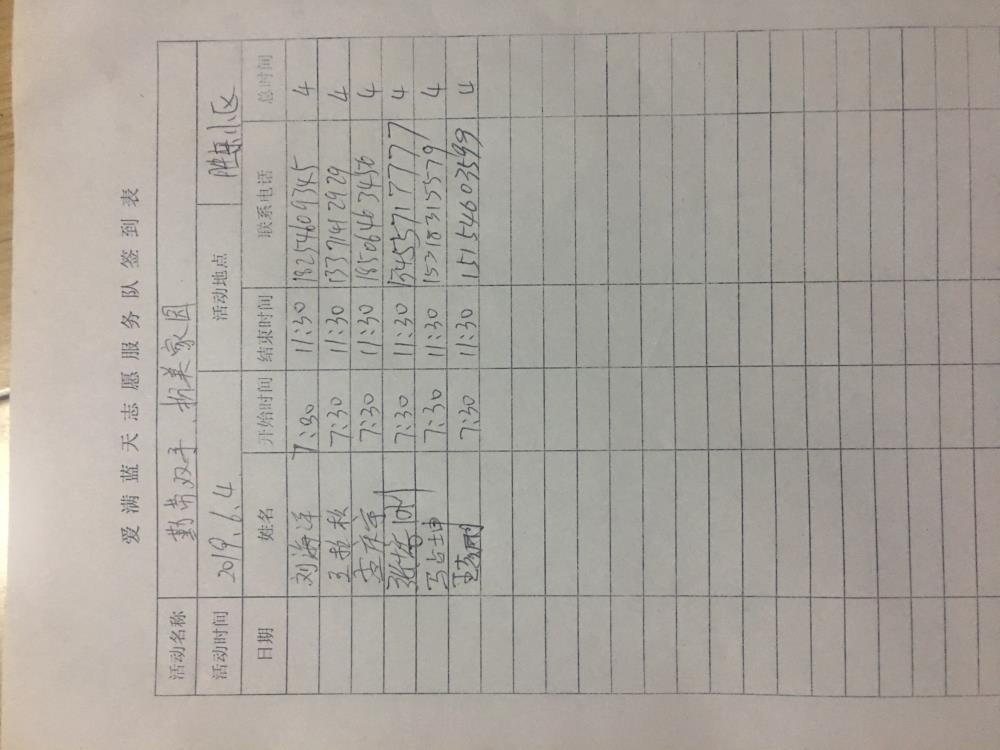 爱满蓝天志愿服务队签到表
活动名称 勤劳双手、扮美家园
活动时间 2019.6.4 活动地点 胜东小区
日期 姓名 开始时间 结束时间 联系电话 总时间
刘海洋 7:30 11:30 18254609345 4
7:30 11:30 13371412929 4
7:30 11:30 18506463456 4
7:30 11:30 15455717777 4
马占坤 7:30 11:30 15318315579 4
7:30 11:30 15154603599 4